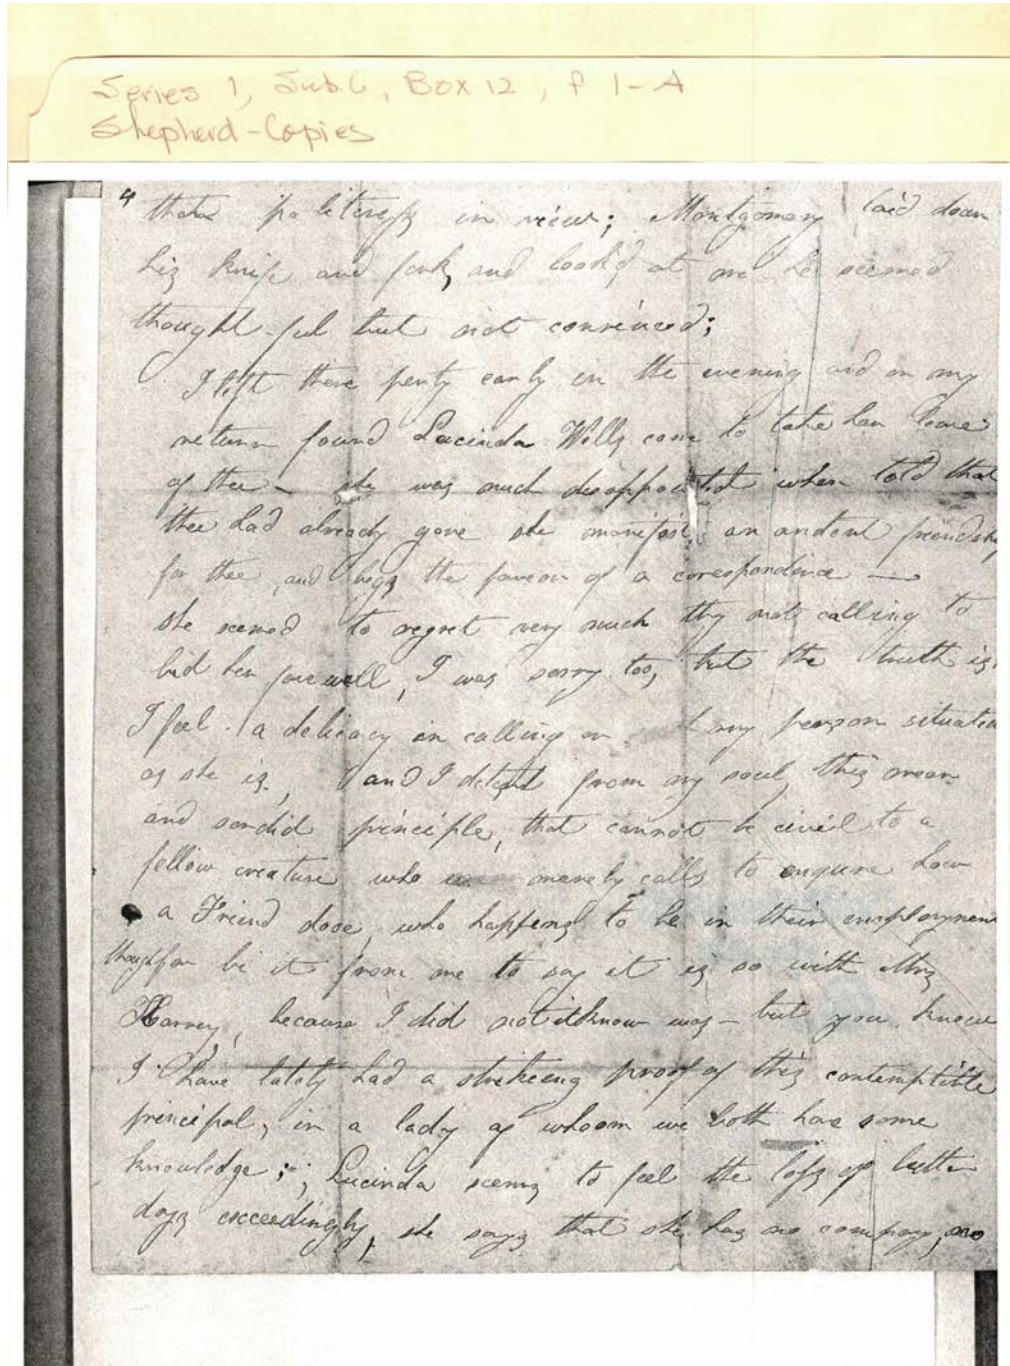 Series 1, Sub 6, Box 12, f 1-A
Shepherd-Copies
4
politeness in view; Montgomery laid down
his knife and fork, and look'd at me he seemed
thought-ful but not convinced;
I left there perty early in the evening and on my
return found Lucinda Wills come to take her leave
of thee – she was much disappointed when told that
thee had already gone she manifests an ardent friendship
for thee, and begs the favour of a corespondence —
she seemed to regret very much thy not calling to
bid her farewell, I was sorry too, but the truth is
I feel a delicacy in calling on any person situated
as she is, and I detest from my soul, this mean
and sordid principle, that cannot be civil to a
fellow creature who merely calls to enquire how
a Friend dooe, who happens to be in their employment
though far be it from me to say it is so with Mrs
Harvey, because I did not know – but you know
I have lately had a strikeing proof of this contemptible
principal, in a lady of whoom we both has some
knowledge; ; Lucinda seems to feel the loss of better
days exceedingly, she says that she has no company, no